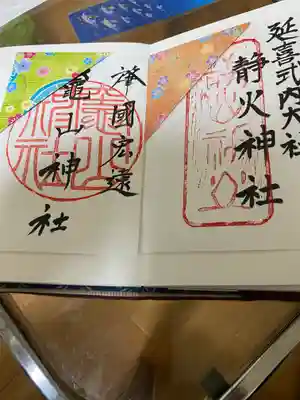 延喜式内大社
静火神社
肇國宏遠
竈山神社